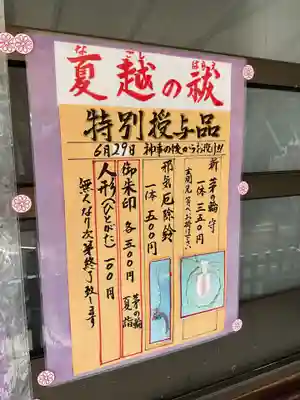 なごしのはらえ
夏越の祓
特別授与品
6月29日 神事の後からお授け!!
新 茅の輪守
一体 三五〇円
玄関先等へお祀り下さい
邪気厄除鈴
一体 五〇〇円
御朱印 各三〇〇円
茅の輪
夏詣
人形(ひとがた)一〇〇円
無くなり次第終了致します